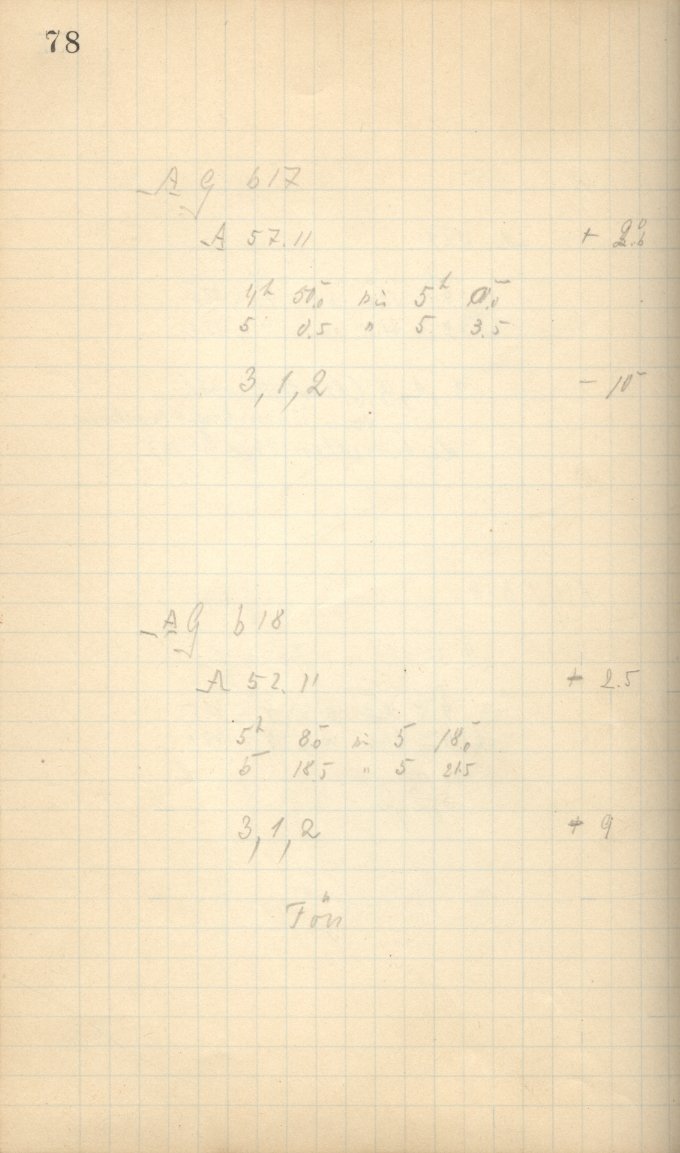 78
A G b 17
A 57.11 + 2.6
4h 50.0 bis 5h 0.0
5 0.5 " 5 3.5
3, 1, 2 - 10
A G b 18
A 52.11 + 2.5
5h 8.0 bis 5 18.0
5 18.5 " 5 21.5
3, 1, 2 + 9
Fön